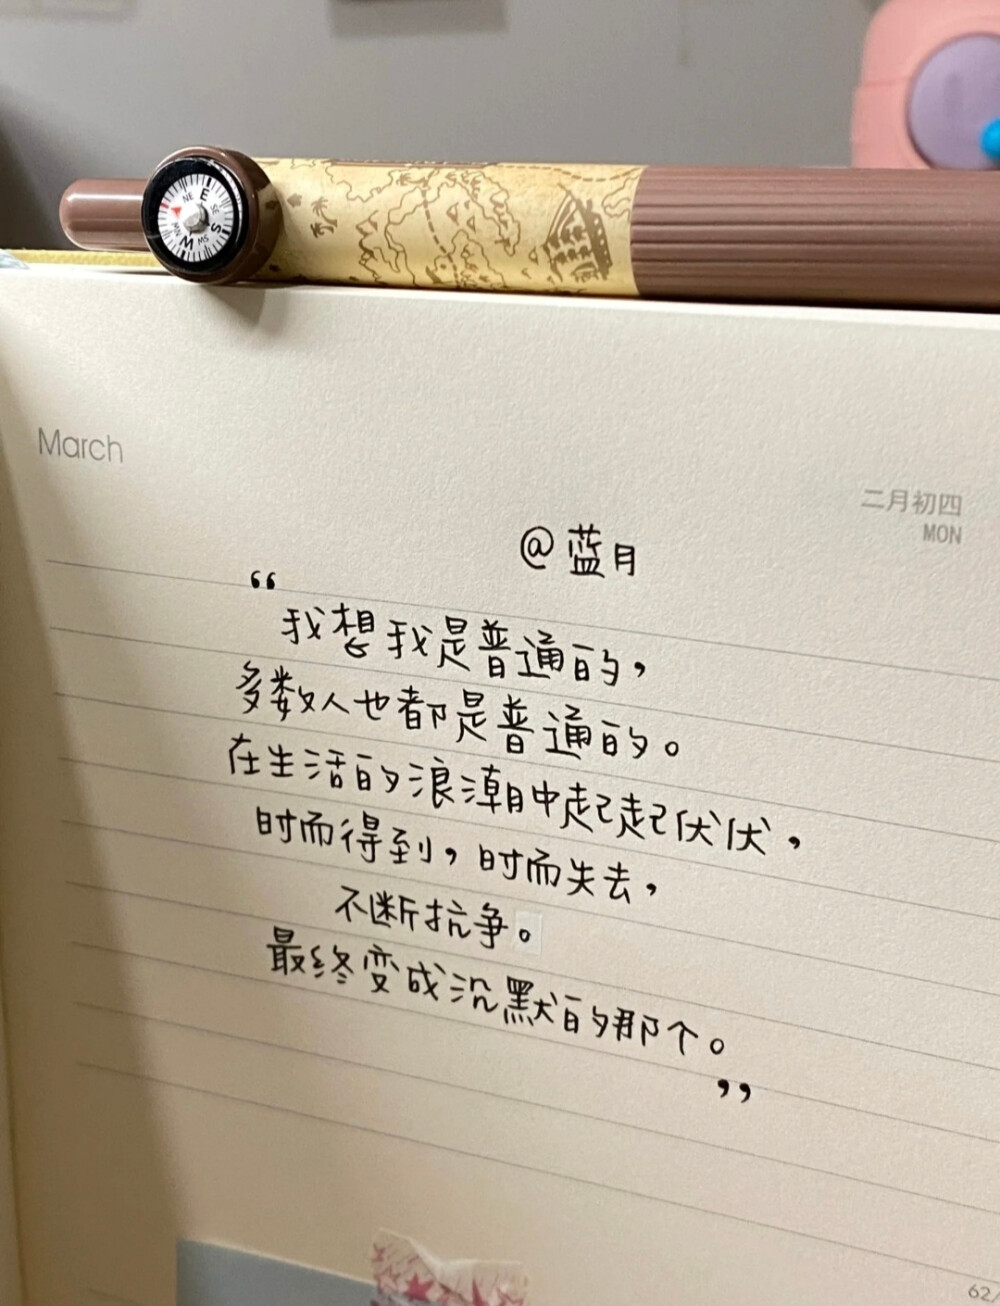 March
二月初四
MON
@蓝月
“
我想我是普通的，
多数人也都是普通的。
在生活的浪潮中起起伏伏，
时而得到，时而失去，
不断抗争。
最终变成沉默的那个。
”
62/